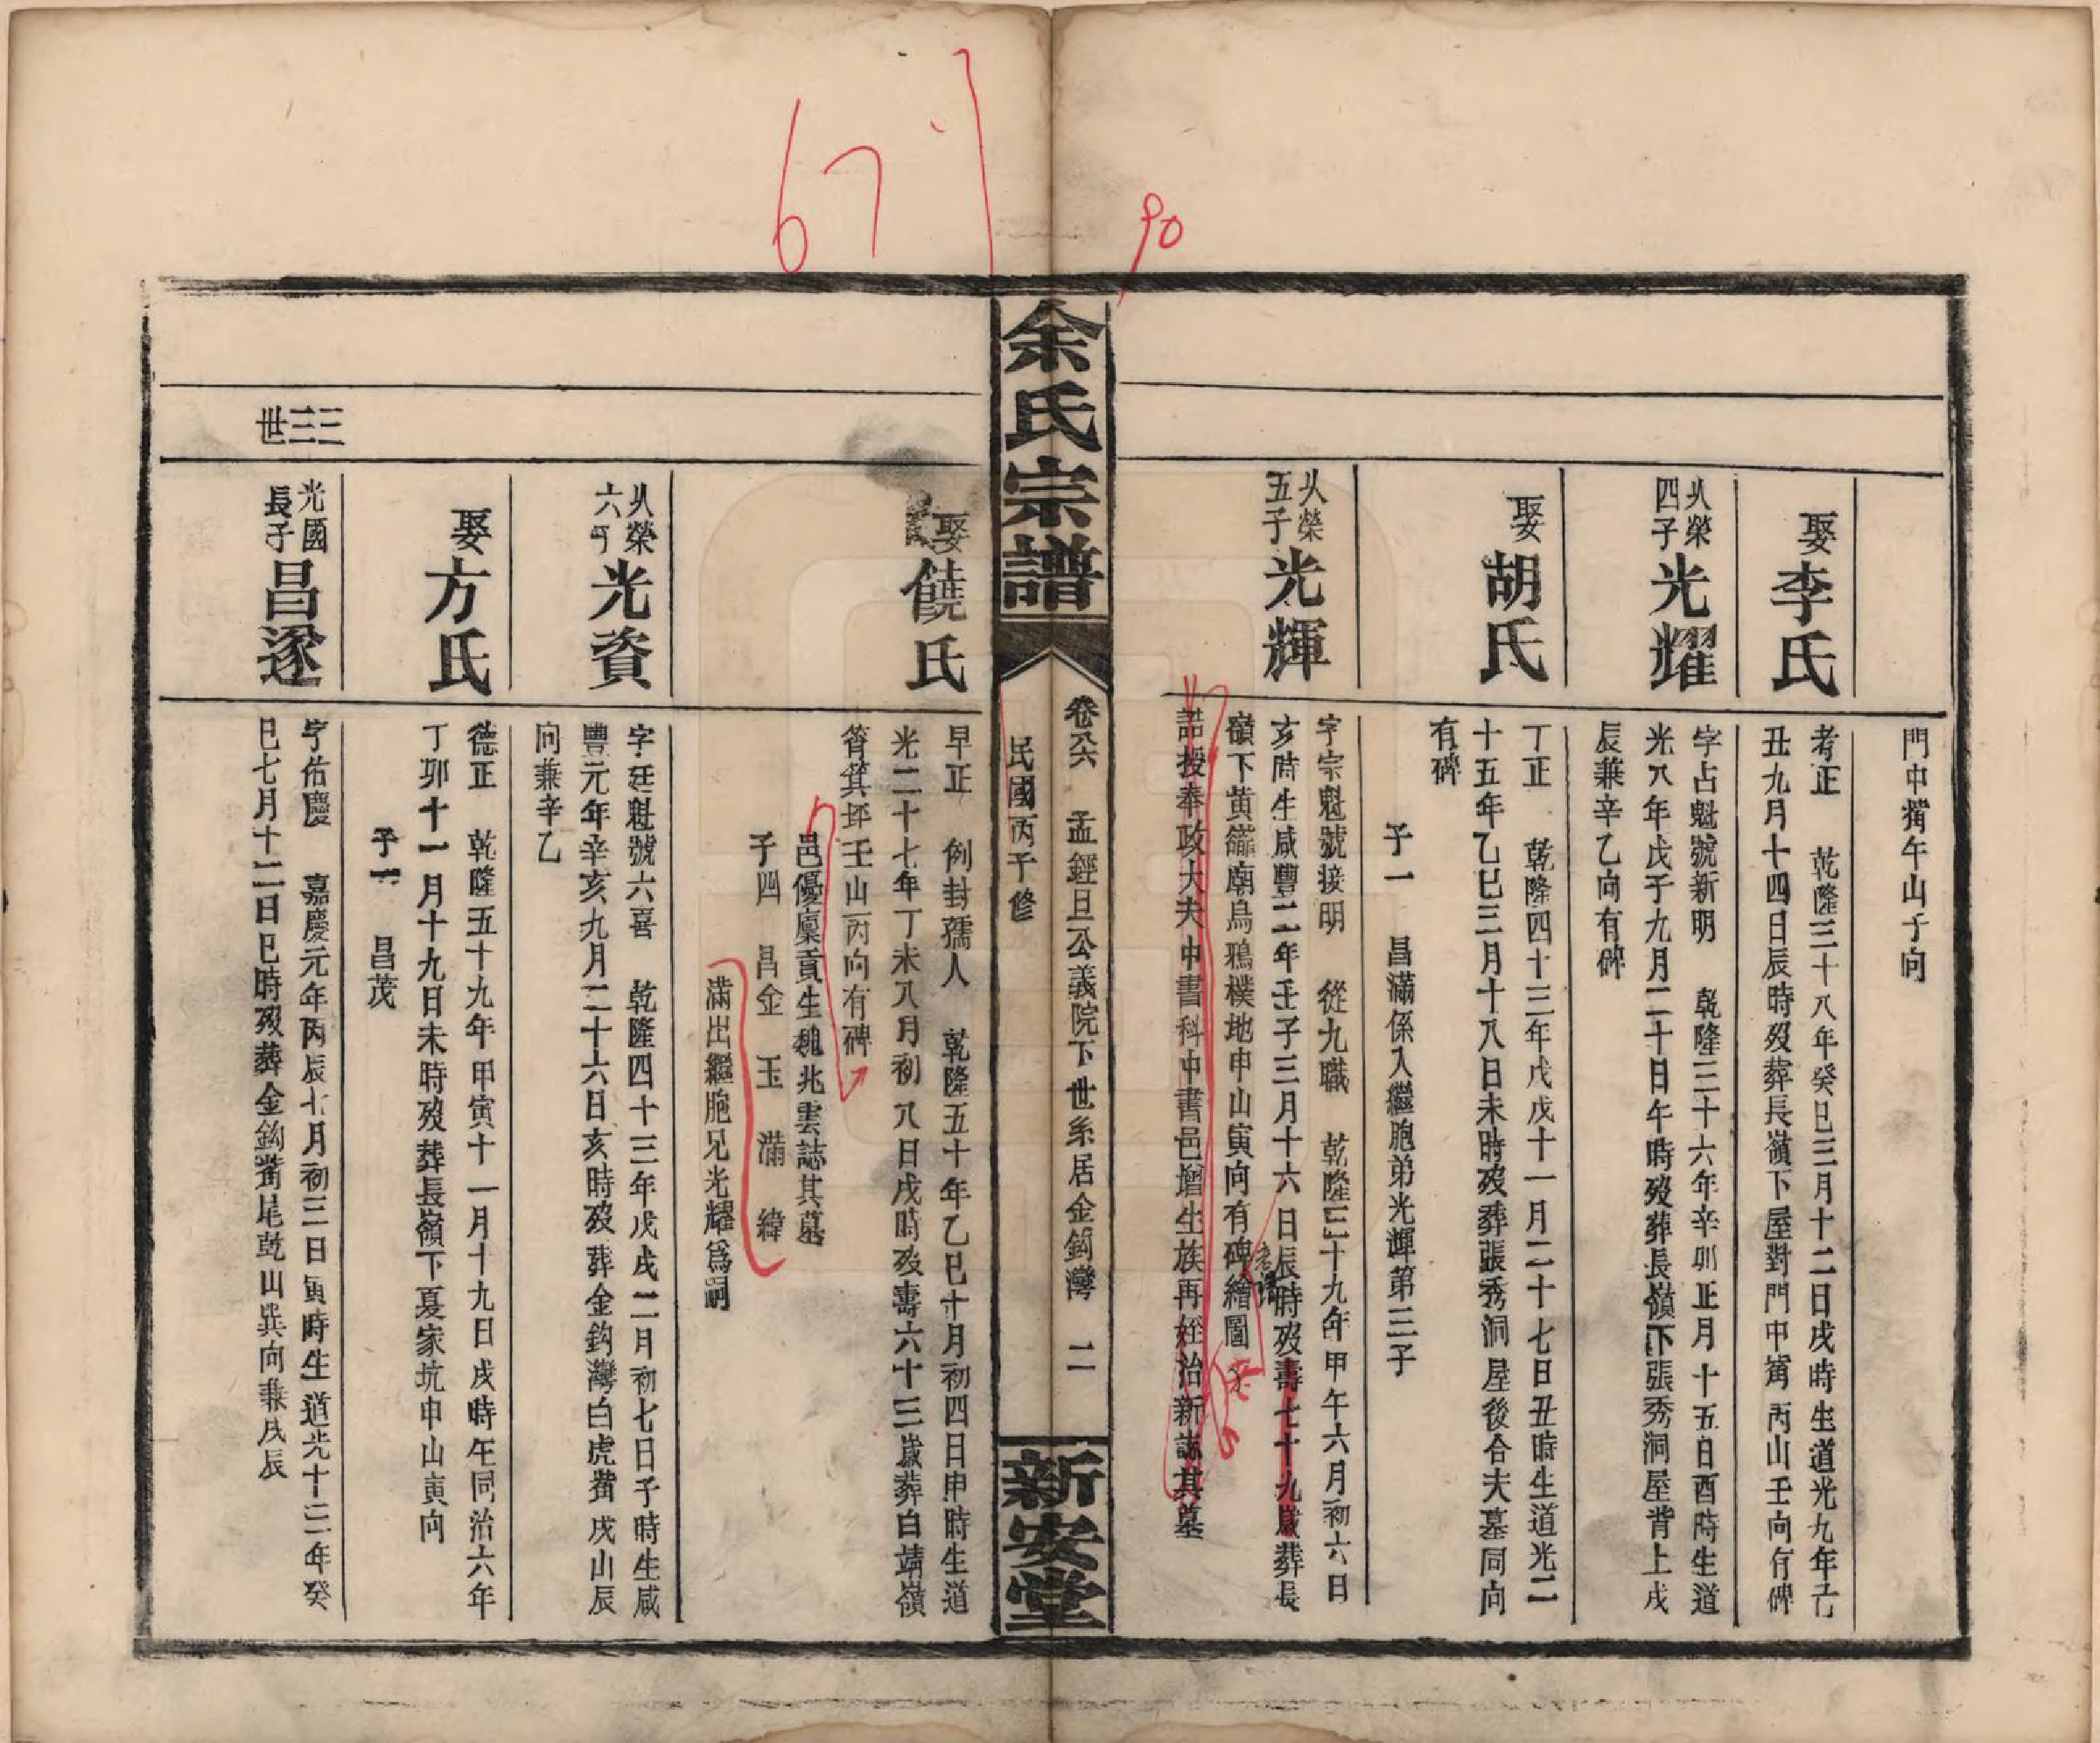 67
90
門中獨午山子向
娶李氏
考正　乾隆三十八年癸巳三月十二日戌時生道光九年己
丑九月十四日辰時歿葬長嶺下屋對門中嘴丙山壬向有碑
以榮
四子
光耀
字占魁號新明　乾隆三十六年辛卯正月十五日酉時生道
光八年戊子九月二十日午時歿葬長嶺下張秀洞屋背上戌
辰兼辛乙向有碑
娶胡氏
丁正　乾隆四十三年戊戌十一月二十七日丑時生道光二
十五年乙巳三月十八日未時歿葬張秀洞屋後合夫墓同向
有碑
子一　昌滿係入繼胞弟光輝第三子
以榮
五子
光輝
字宗魁號接明　從九職　乾隆三十九年甲午六月初六日
亥時生咸豐二年壬子三月十六日辰時歿壽七十九歲葬長
嶺下黃龍廟烏鴉樸地申山寅向有碑繪圖
誥授奉政大夫中書科中書邑增生族再姪治新誌其墓
余氏宗譜
卷六　孟經旦公義院下世系居金鈎灣　二
民國丙子修
新安堂
娶饒氏
早正　例封孺人　乾隆五十年乙巳十月初四日申時生道
光二十七年丁未八月初八日戌時歿壽六十三歲葬白靖嶺
筲箕坪壬山丙向有碑
邑優廩貢生魏兆雲誌其墓
子四　昌金　玉　滿　緯
滿出繼胞兄光耀爲嗣
以榮
六子
光資
字廷魁號六喜　乾隆四十三年戊戌二月初七日子時生咸
豐元年辛亥九月二十六日亥時歿葬金鈎灣白虎嘴戌山辰
向兼辛乙
娶方氏
德正　乾隆五十九年甲寅十一月十九日戌時生同治六年
丁卯十一月十九日未時歿葬長嶺下夏家坑申山寅向
子一　昌茂
三三世
光國
長子
昌遂
字佑慶　嘉慶元年丙辰七月初三日寅時生道光十三年癸
巳七月十二日巳時歿葬金鈎嘴尾乾山巽向兼戌辰